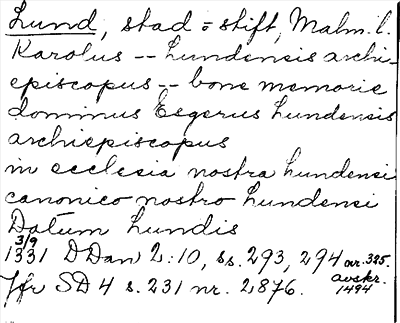 Lund, stad o stift, Malm. l.
Karolus -- Lundensis archi-
episcopus -- bone memorie
dominus Esgerus Lundensis
archiepiscopus
in ecclesia nostra Lundensi
canonico nostro Lundensi
Datum Lundis
3/9
1331 DDan 2:10, ss. 293, 294 nr. 325.
avskr.
1494
Jfr SD 4 s. 231 nr. 2876.